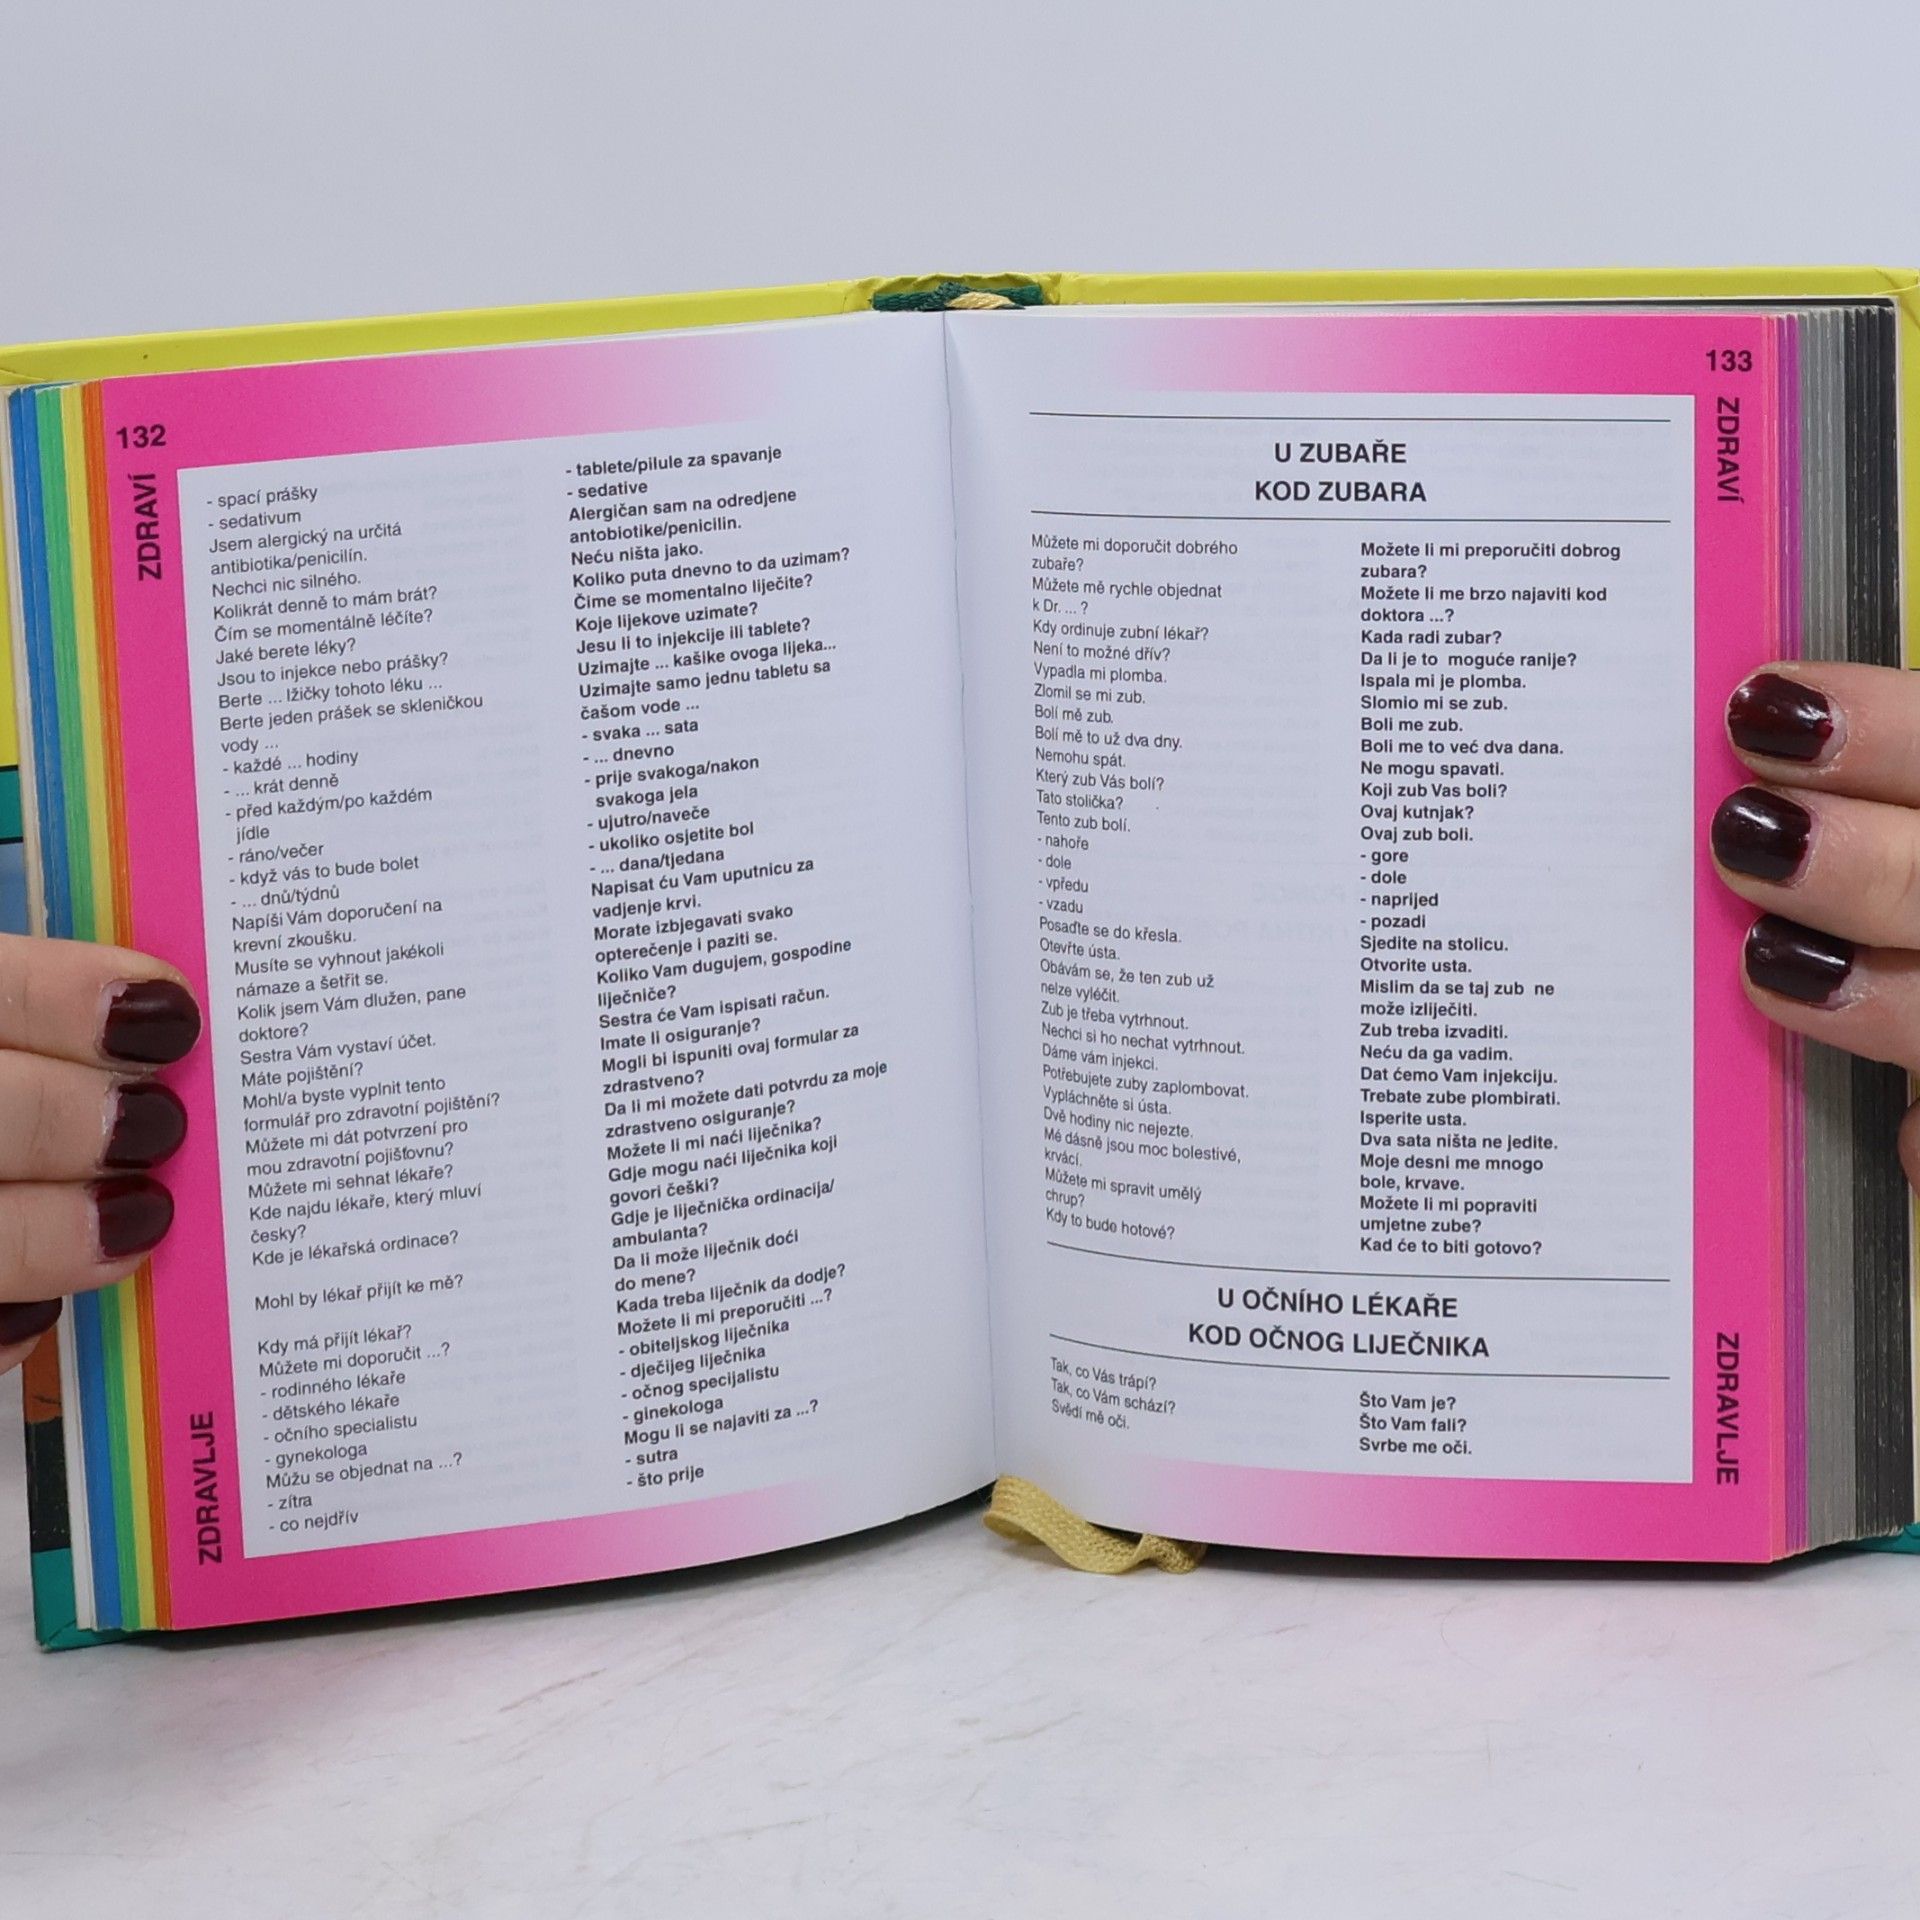 132
ZDRAVÍ
- spací prášky
- sedativum
Jsem alergický na určitá
antibiotika/penicilín.
Nechci nic silného.
Kolikrát denně to mám brát?
Čím se momentálně léčíte?
Jaké berete léky?
Jsou to injekce nebo prášky?
Berte ... lžičky tohoto léku ...
Berte jeden prášek se skleničkou
vody ...
- každé ... hodiny
- ... krát denně
- před každým/po každém
jídle
- ráno/večer
- když vás to bude bolet
- ... dnů/týdnů
Napíši Vám doporučení na
krevní zkoušku.
Musíte se vyhnout jakékoli
námaze a šetřit se.
Kolik jsem Vám dlužen, pane
doktore?
Sestra Vám vystaví účet.
Máte pojištění?
Mohl/a byste vyplnit tento
formulář pro zdravotní pojištění?
Můžete mi dát potvrzení pro
mou zdravotní pojišťovnu?
Můžete mi sehnat lékaře?
Kde najdu lékaře, který mluví
česky?
Kde je lékařská ordinace?
Mohl by lékař přijít ke mě?
Kdy má přijít lékař?
Můžete mi doporučit ...?
- rodinného lékaře
- dětského lékaře
- očního specialistu
- gynekologa
Můžu se objednat na ...?
- zítra
- co nejdřív
- tablete/pilule za spavanje
- sedative
Alergičan sam na odredjene
antobiotike/penicilin.
Neću ništa jako.
Koliko puta dnevno to da uzimam?
Čime se momentalno liječite?
Koje lijekove uzimate?
Jesu li to injekcije ili tablete?
Uzimajte ... kašike ovoga lijeka...
Uzimajte samo jednu tabletu sa
čašom vode ...
- svaka ... sata
- ... dnevno
- prije svakoga/nakon
svakoga jela
- ujutro/naveče
- ukoliko osjetite bol
- ... dana/tjedana
Napisat ću Vam uputnicu za
vadjenje krvi.
Morate izbjegavati svako
opterečenje i paziti se.
Koliko Vam dugujem, gospodine
liječniče?
Sestra će Vam ispisati račun.
Imate li osiguranje?
Mogli bi ispuniti ovaj formular za
zdrastveno?
Da li mi možete dati potvrdu za moje
zdrastveno osiguranje?
Možete li mi naći liječnika?
Gdje mogu naći liječnika koji
govori češki?
Gdje je liječnička ordinacija/
ambulanta?
Da li može liječnik doći
do mene?
Kada treba liječnik da dodje?
Možete li mi preporučiti ...?
- obiteljskog liječnika
- dječijeg liječnika
- očnog specijalistu
- ginekologa
Mogu li se najaviti za ...?
- sutra
- što prije
ZDRAVLJE
133
ZDRAVÍ
U ZUBAŘE
KOD ZUBARA
Můžete mi doporučit dobrého
zubaře?
Můžete mě rychle objednat
k Dr. ... ?
Kdy ordinuje zubní lékař?
Není to možné dřív?
Vypadla mi plomba.
Zlomil se mi zub.
Bolí mě zub.
Bolí mě to už dva dny.
Nemohu spát.
Který zub Vás bolí?
Tato stolička?
Tento zub bolí.
- nahoře
- dole
- vpředu
- vzadu
Posaďte se do křesla.
Otevřte ústa.
Obávám se, že ten zub už
nelze vyléčit.
Zub je třeba vytrhnout.
Nechci si ho nechat vytrhnout.
Dáme vám injekci.
Potřebujete zuby zaplombovat.
Vypláchněte si ústa.
Dvě hodiny nic nejezte.
Mé dásně jsou moc bolestivé,
krvácí.
Můžete mi spravit umělý
chrup?
Kdy to bude hotové?
Možete li mi preporučiti dobrog
zubara?
Možete li me brzo najaviti kod
doktora ...?
Kada radi zubar?
Da li je to moguće ranije?
Ispala mi je plomba.
Slomio mi se zub.
Boli me zub.
Boli me to već dva dana.
Ne mogu spavati.
Koji zub Vas boli?
Ovaj kutnjak?
Ovaj zub boli.
- gore
- dole
- naprijed
- pozadi
Sjedite na stolicu.
Otvorite usta.
Mislim da se taj zub ne
može izliječiti.
Zub treba izvaditi.
Neću da ga vadim.
Dat ćemo Vam injekciju.
Trebate zube plombirati.
Isperite usta.
Dva sata ništa ne jedite.
Moje desni me mnogo
bole, krvave.
Možete li mi popraviti
umjetne zube?
Kad će to biti gotovo?
U OČNÍHO LÉKAŘE
KOD OČNOG LIJEČNIKA
Tak, co Vás trápí?
Tak, co Vám schází?
Svědí mě oči.
Što Vam je?
Što Vam fali?
Svrbe me oči.
ZDRAVLJE